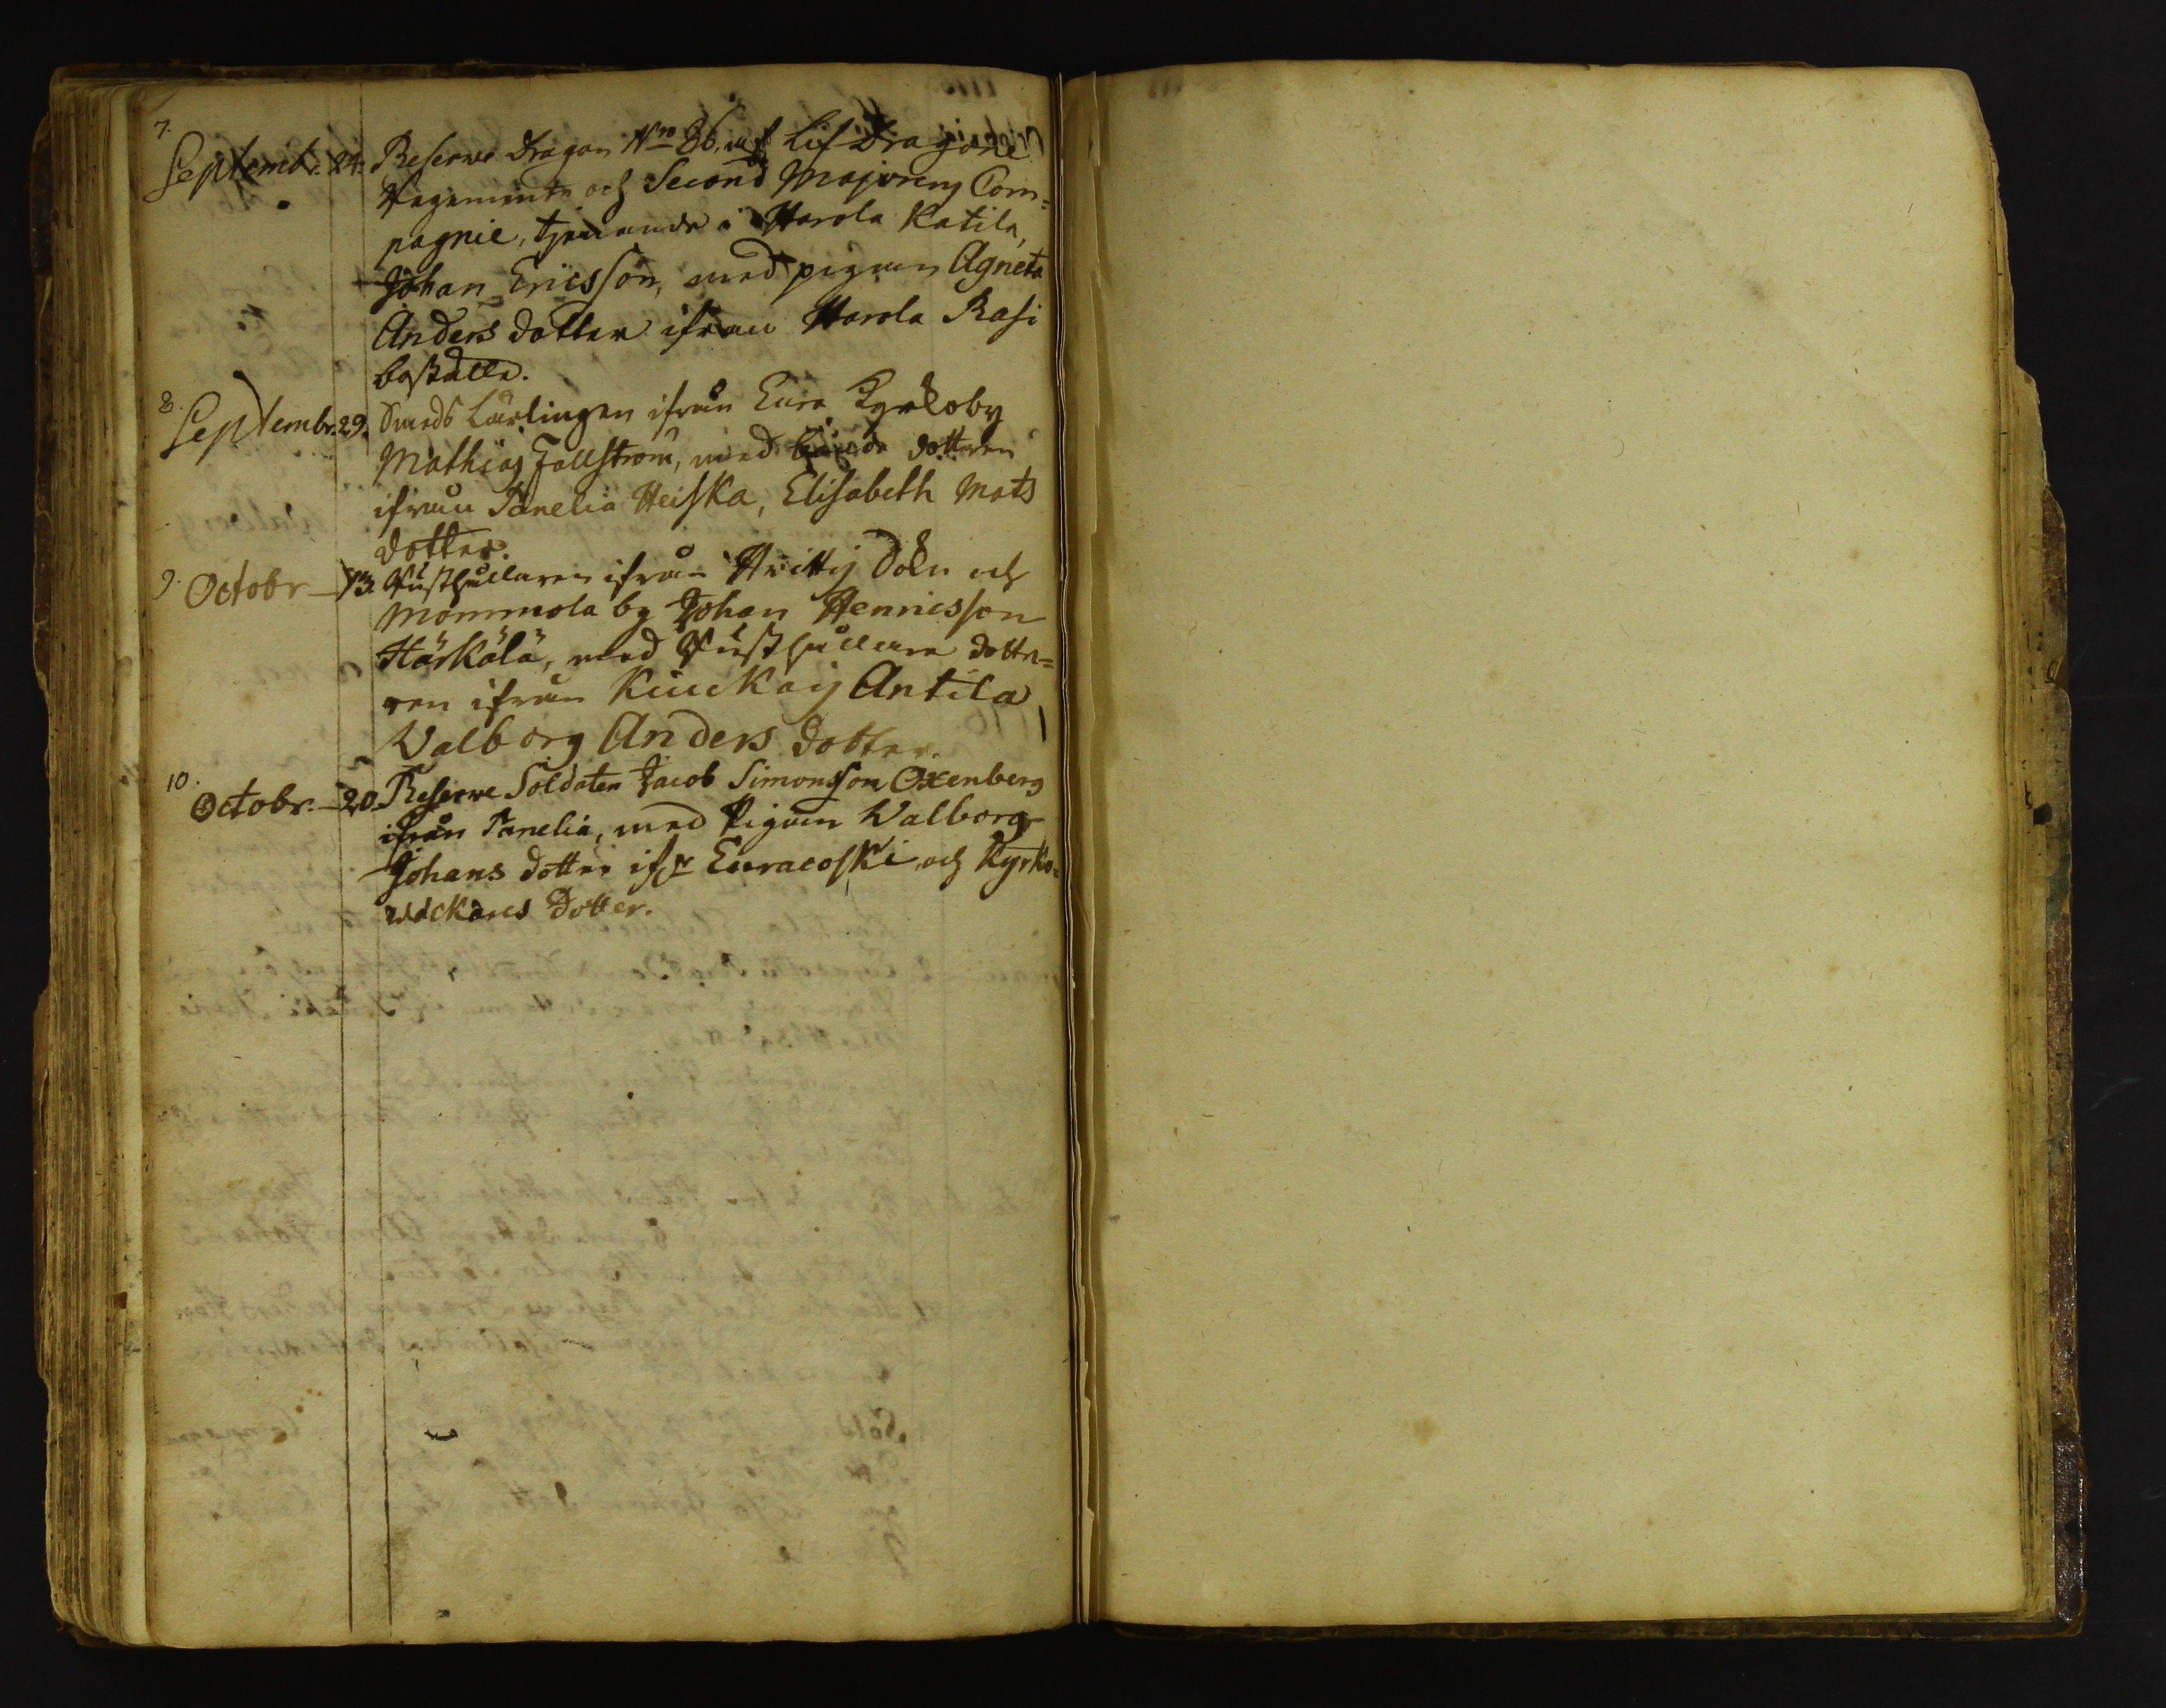 7.
Septembr. 24. Reserve Dragon N:ro 86. af Lif Dragone
Regemente och Second Majorens Com=
pagnie, tjenande i Harola Katila,
Johan Ericsson, med pigan Agneta
Anders dotter ifrån Harola Rasi
boställe.
8.
Septembr. 29. Smeds Lärlingen ifrån Eura Kyrkoby
Mathias Fallström, med bonde dottren
ifrån Panelia Heiska, Elisabeth Mats
dotter.
9. Octobr 13. Rusthållaren ifrån Hvittis Sokn och
Mommola by Johan Henricsson
Härkälä, med Rusthållare dotte=
ren ifrån Kiuckais Antila
Walborg Anders dotter.
10.
Octobr. 20. Reserve Soldaten Jacob Simonsson Oxenberg
ifrån Panelia, med Pigan Walborg
Johans dotter ifr Euracoski och Kyrko=
wäckares Dotter.